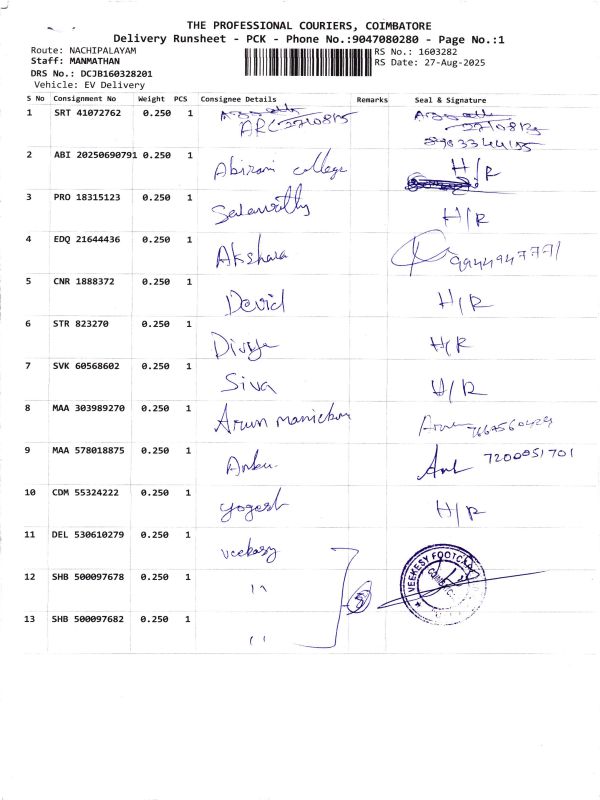 THE PROFESSIONAL COURIERS, COIMBATORE
Delivery Runsheet - PCK - Phone No.:9047080280 - Page No.:1
Route: NACHIPALAYAM RS No.: 1603282
Staff: MANMATHAN RS Date: 27-Aug-2025
DRS No.: DCJB160328201
Vehicle: EV Delivery
S No Consignment No Weight PCS Consignee Details Remarks Seal & Signature
1 SRT 41072762 0.250 1
2 ABI 20250690791 0.250 1 Abirami college H/R
3 PRO 18315123 0.250 1 H/R
4 EDQ 21644436 0.250 1 Akshara
5 CNR 1888372 0.250 1 David H/R
6 STR 823270 0.250 1 Divya H/R
7 SVK 60568602 0.250 1 Siva H/R
8 MAA 303989270 0.250 1 Arun
9 MAA 578018875 0.250 1 7200051701
10 CDM 55324222 0.250 1 Yogesh H/R
11 DEL 530610279 0.250 1 veekesy VEEKESY
12 SHB 500097678 0.250 1 "
13 SHB 500097682 0.250 1 "